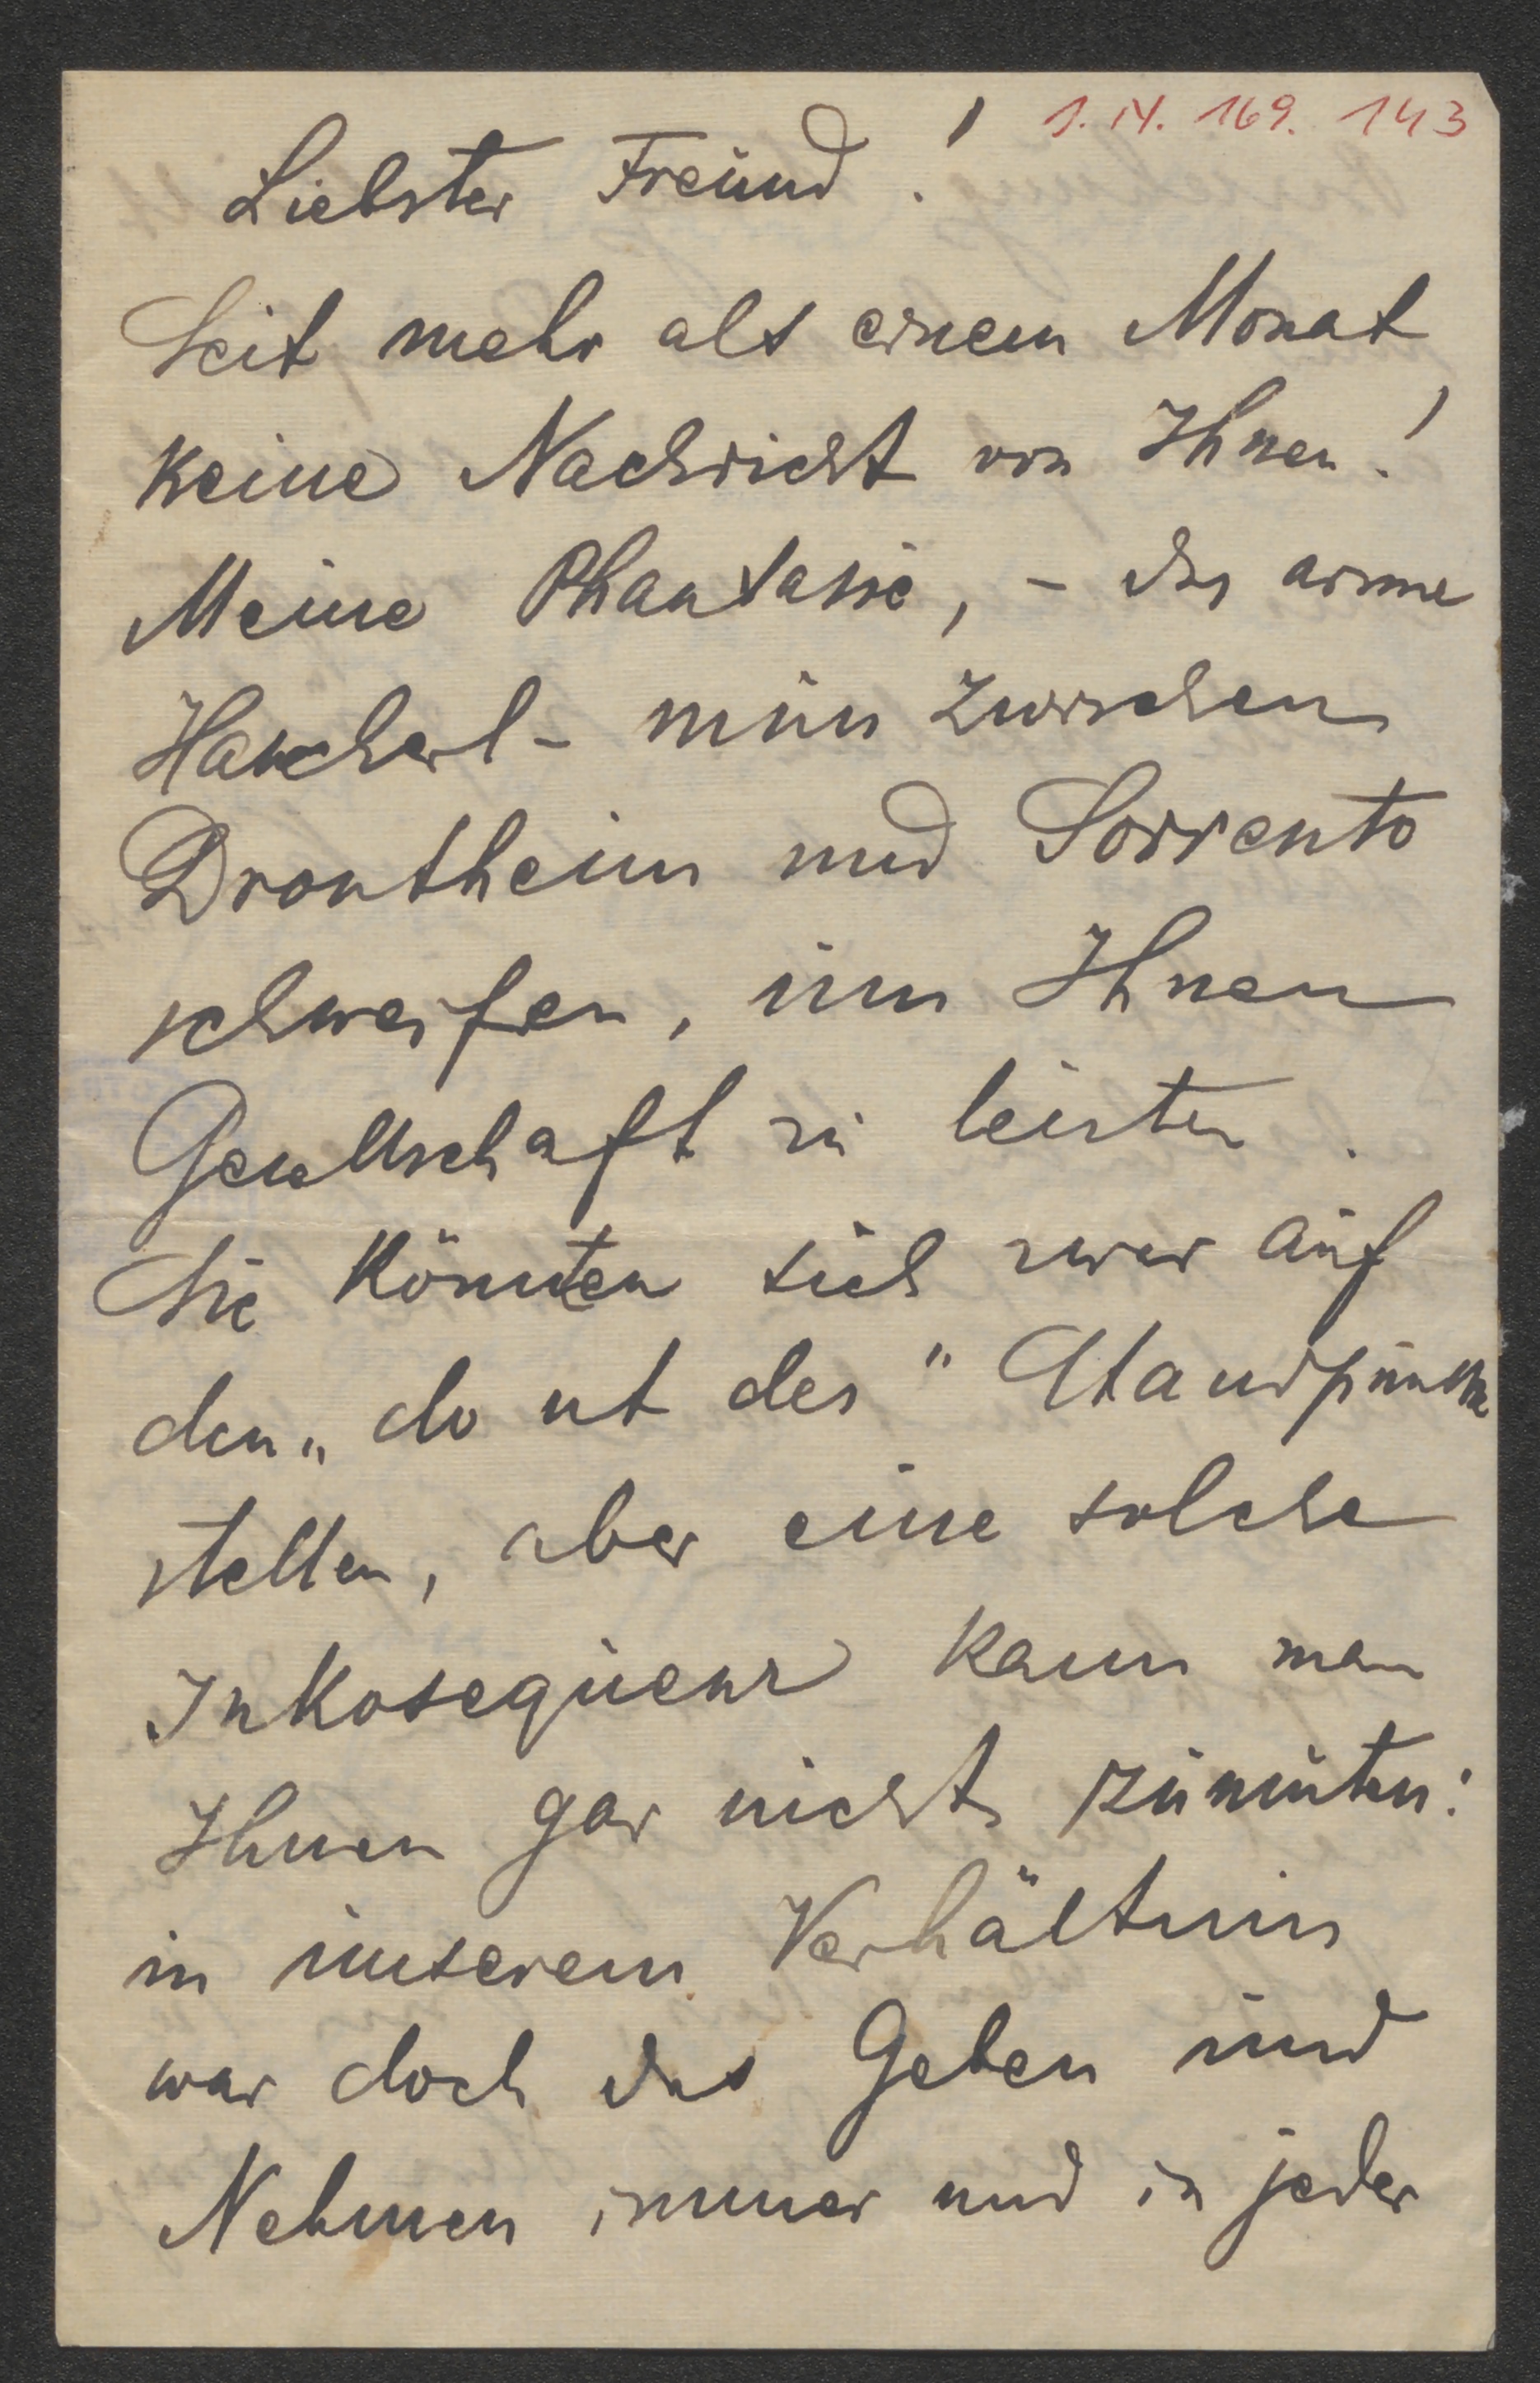 1. IV. 169. 143
Liebster Freund!
Seit mehr als einem Monat
keine Nachricht von Ihnen!
Meine Phantasie, - das arme
Hascherl - muss zwischen
Drontheim und Sorrento
schweifen, um Ihnen
Gesellschaft zu leisten.
Sie könnten sich zwar auf
den „do ut des" Standpunkt
stellen, aber eine solche
Inkosequenz kann man
Ihnen gar nicht zumuten:
in unserem Verhältnis
war doch das Geben und
Nehmen immer und in jeder